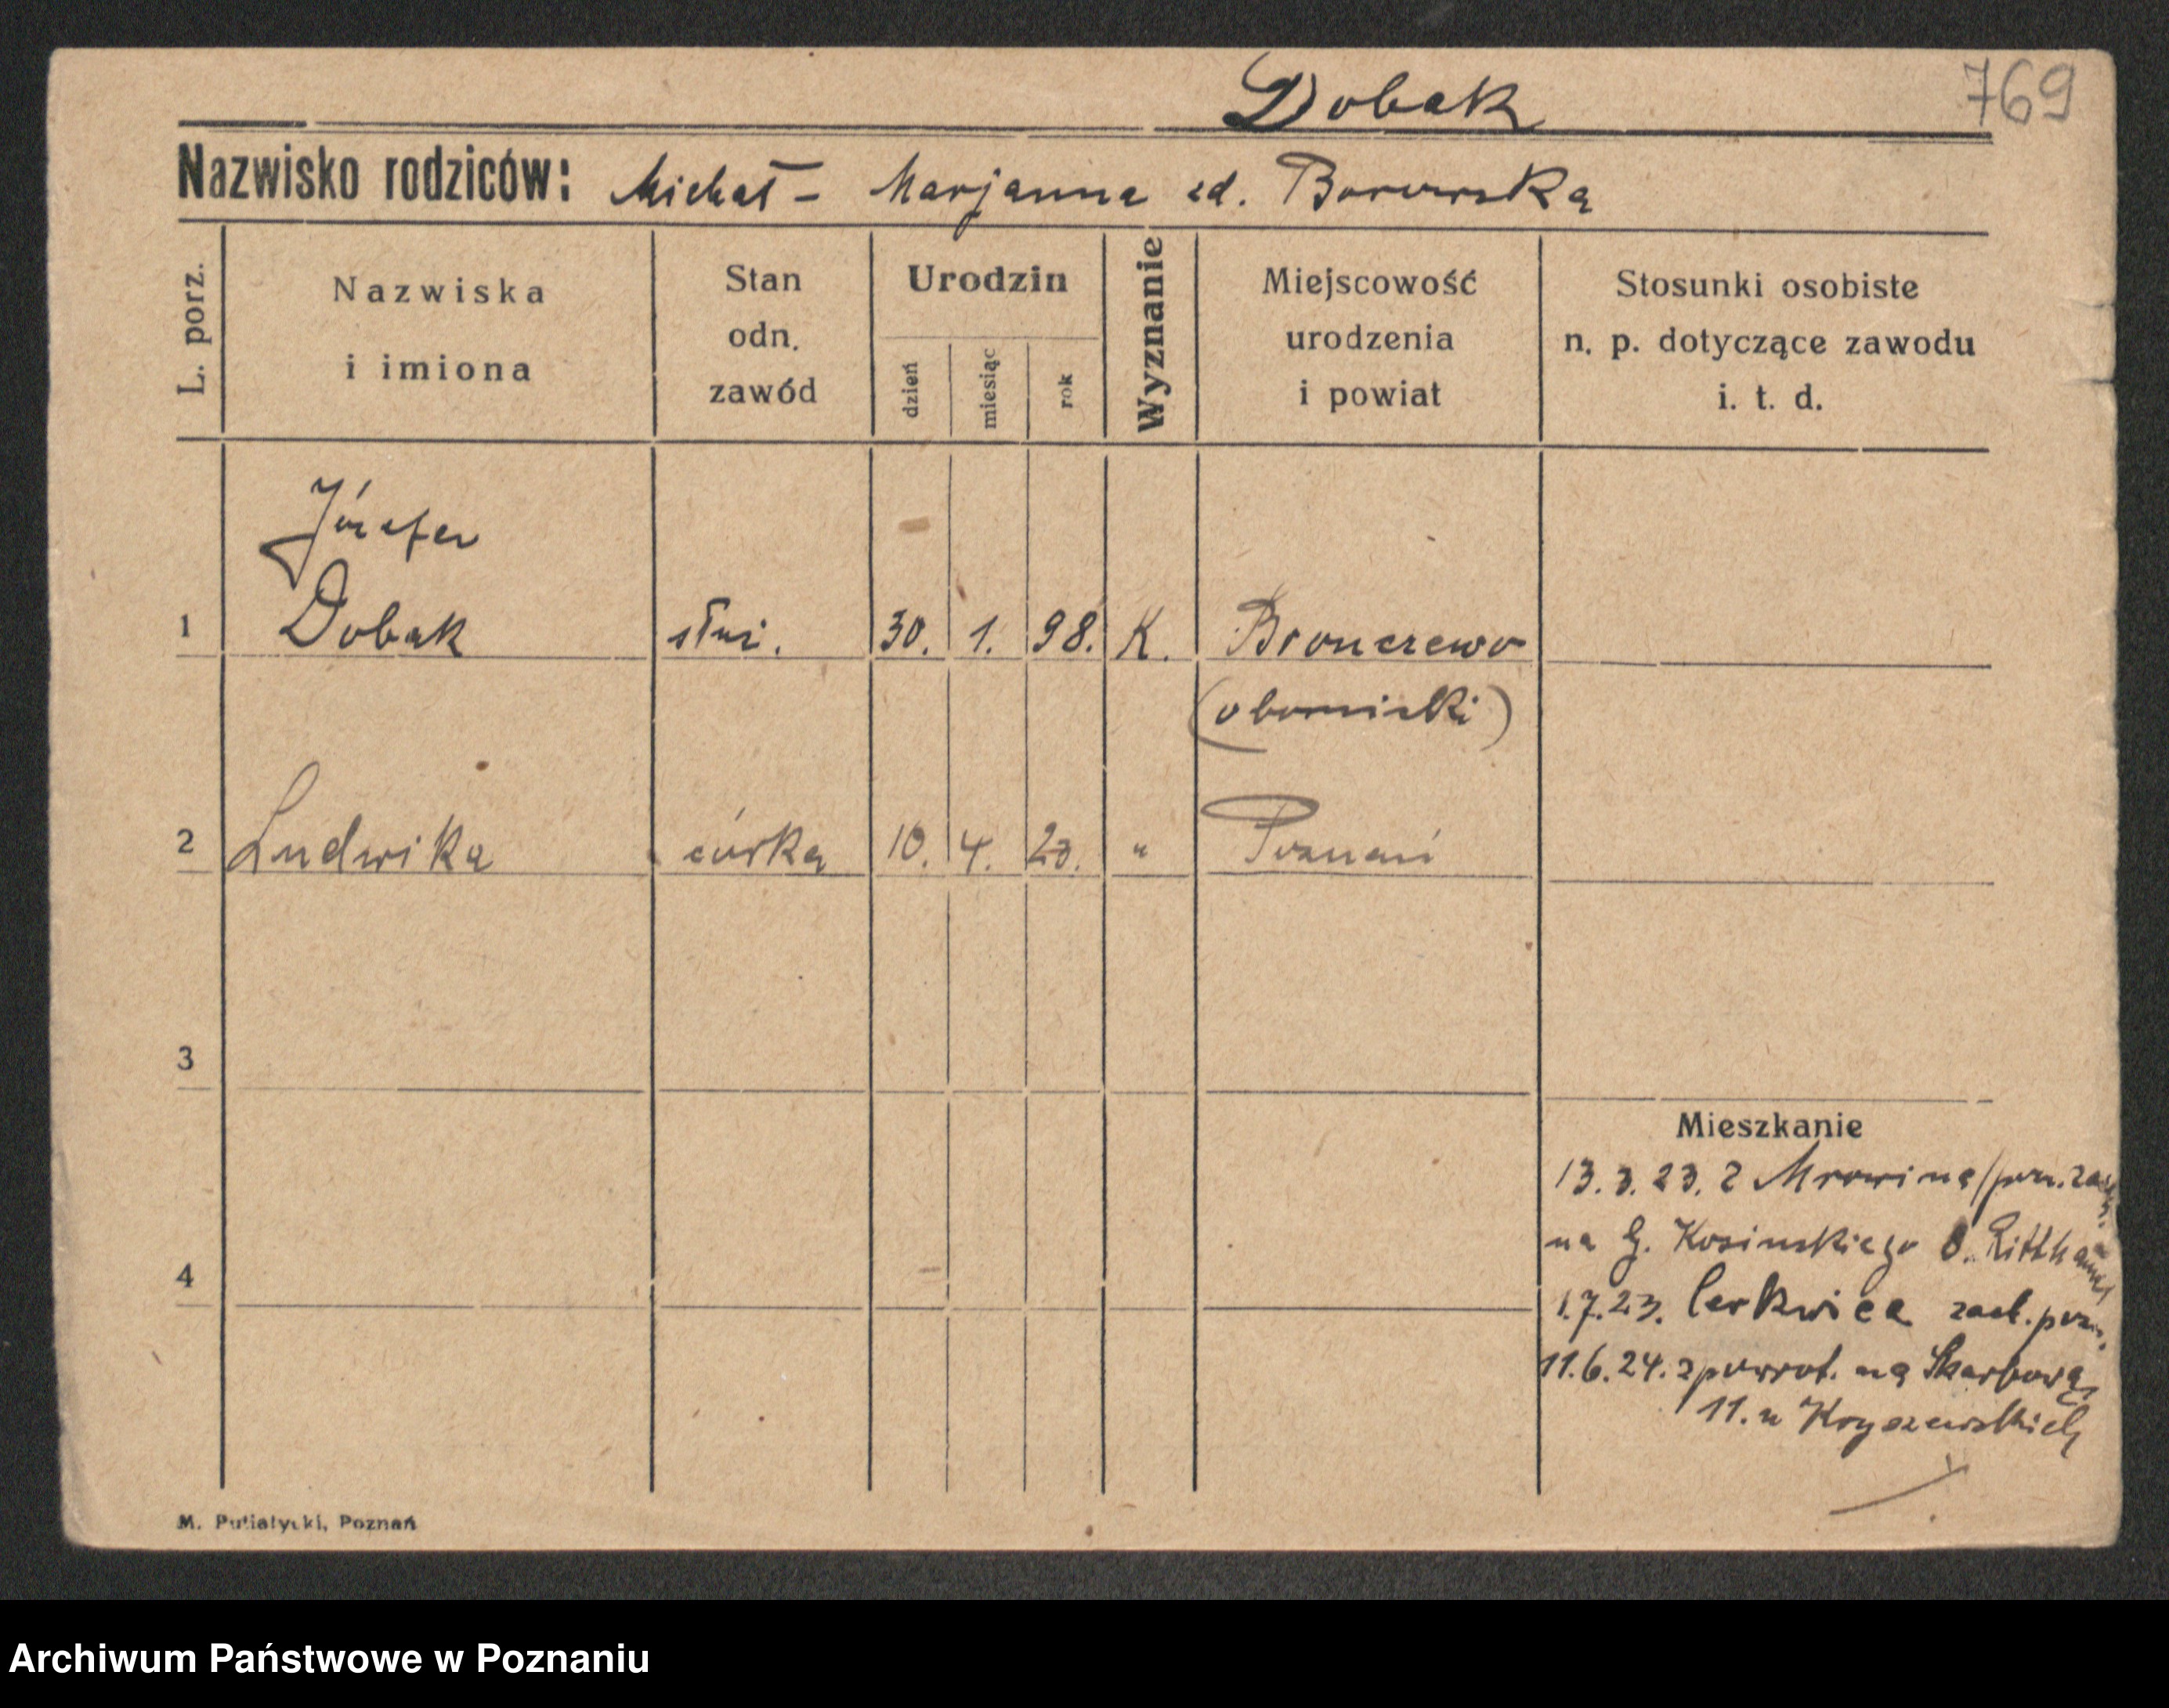 Dobak
769
Nazwisko rodziców: Michał - Marjanna zd. Borowska
L. porz.
Nazwiska
i imiona
Stan
odn.
zawód
Urodzin
dzień
miesiąc
rok
Wyznanie
Miejscowość
urodzenia
i powiat
Stosunki osobiste
n. p. dotyczące zawodu
i. t. d.
Józefa
1 Dobak służ. 30. 1. 98. K. Bronczewo
(obornicki)
2 Ludwika córka 10. 4. 20. " Poznań
3
Mieszkanie
13.3.23. z Mrowina / pozn. zach.
na G. Kosinskiego 8.
4
1.7.23. Cerkwica zach. pozn.
11.6.24. zpowrot. na Skarbową
11. u Kryszewskich
M. Putiatycki, Poznań
Archiwum Państwowe w Poznaniu